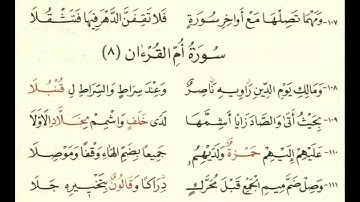 ١٠٧- وَمَهْمَا تَصِلْهَا مَعْ أَوَاخِرِ سُورَةٍ فَلَا تَقِفَنَّ الدَّهْرَ فِيهَا فَتَثْقُلَا
سُورَةُ أُمِّ الْقُرْءَانِ (٨)
١٠٨- وَمَالِكِ يَوْمِ الدِّينِ رَاوِيهِ نَاصِرٌ وَعِنْدَ سِرَاطٍ وَالسِّرَاطِ لِ قُنْبُلَا
١٠٩- بِحَيْثُ أَتَىٰ وَالصَّادَ زَايًا اشِمَّهَا لَدَىٰ خَلَفٍ وَاشْمِمْ لِخَلَّادٍ الَاوَّلَا
١١٠- عَلَيْهِمْ إِلَيْهِمْ حَمْزَةٌ وَلَدَيْهِمُ جَمِيعًا بِضَمِّ الْهَاءِ وَقْفًا وَمَوْصِلَا
١١١- وَصِلْ ضَمَّ مِيمِ الْجَمْعِ قَبْلَ مُحَرَّكٍ دِرَاكًا وَقَالُونٌ بِتَخْيِيرِهِ جَلَا